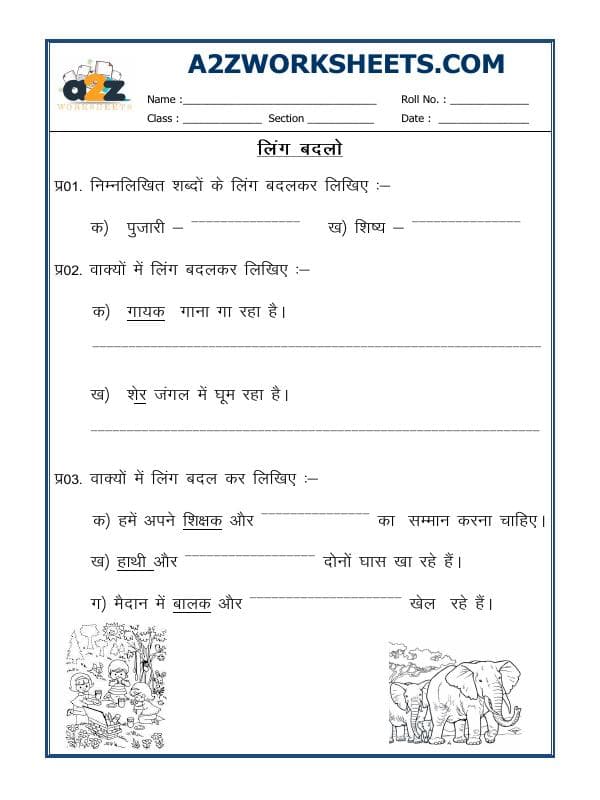 A2ZWORKSHEETS.COM
a2z
WORKSHEETS
Name :______________________________ Roll No. : ____________
Class : ____________ Section __________ Date : ______________
लिंग बदलो
प्र01. निम्नलिखित शब्दों के लिंग बदलकर लिखिए :–
क) पुजारी – ________________ ख) शिष्य – ________________
प्र02. वाक्यों में लिंग बदलकर लिखिए :–
क) गायक गाना गा रहा है।
ख) शेर जंगल में घूम रहा है।
प्र03. वाक्यों में लिंग बदल कर लिखिए :–
क) हमें अपने शिक्षक और ________________ का सम्मान करना चाहिए।
ख) हाथी और ________________ दोनों घास खा रहे हैं।
ग) मैदान में बालक और ________________ खेल रहे हैं।